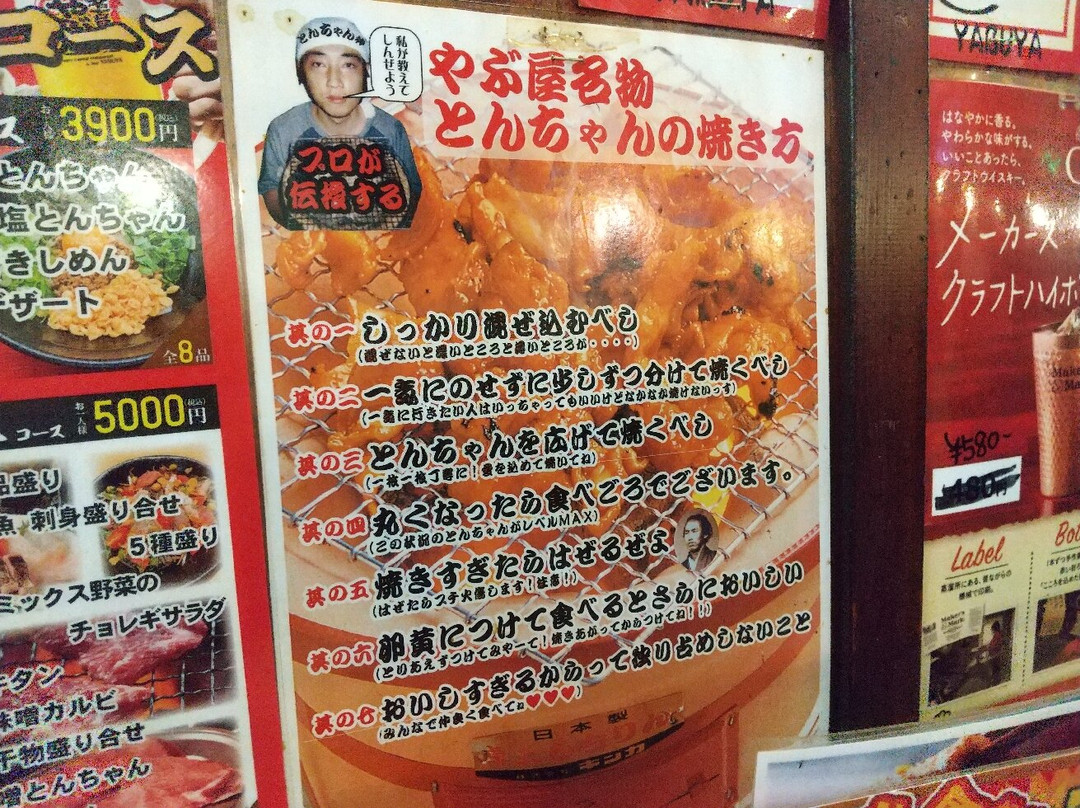 コース
3900円
(税込)
とんちゃん
塩とんちゃん
きしめん
デザート
全8品
お一人様
5000円
(税込)
コース
盛り
刺身盛り合せ
5種盛り
ミックス野菜の
チョレギサラダ
タン
味噌カルビ
干物盛り合せ
とんちゃん
とんちゃん
私が教えて
しんぜよう
プロが
伝授する
やぶ屋名物
とんちゃんの焼き方
其の一 しっかり混ぜ込むべし
(混ぜないと濃いところと薄いところが・・・・)
其の二 一気にのせずに少しずつ分けて焼くべし
(一気に行きたい人はいっちゃってもいいけどなかなか焼けないっす)
其の三 とんちゃんを広げて焼くべし
(一枚一枚丁寧に!愛を込めて焼いてね)
其の四 丸くなったら食べごろでございます。
(この状況のとんちゃんがレベルMAX)
其の五 焼きすぎたらはぜるぜよ
(はぜたらプチ火傷します!注意!)
其の六 卵黄につけて食べるとさらにおいしい
(とりあえずつけてみやーて!焼きあがってからつけてね!!)
其の七 おいしすぎるからって独り占めしないこと
(みんなで仲良く食べてね♥♥♥)
日本製
キンカ
YABUYA
はなやかに香る。
やわらかな味がする。
いいことあったら、
クラフトウイスキー。
メーカーズ
クラフトハイボ
¥580-
480円
Label
蒸溜所にある、昔ながらの
機械で印刷。